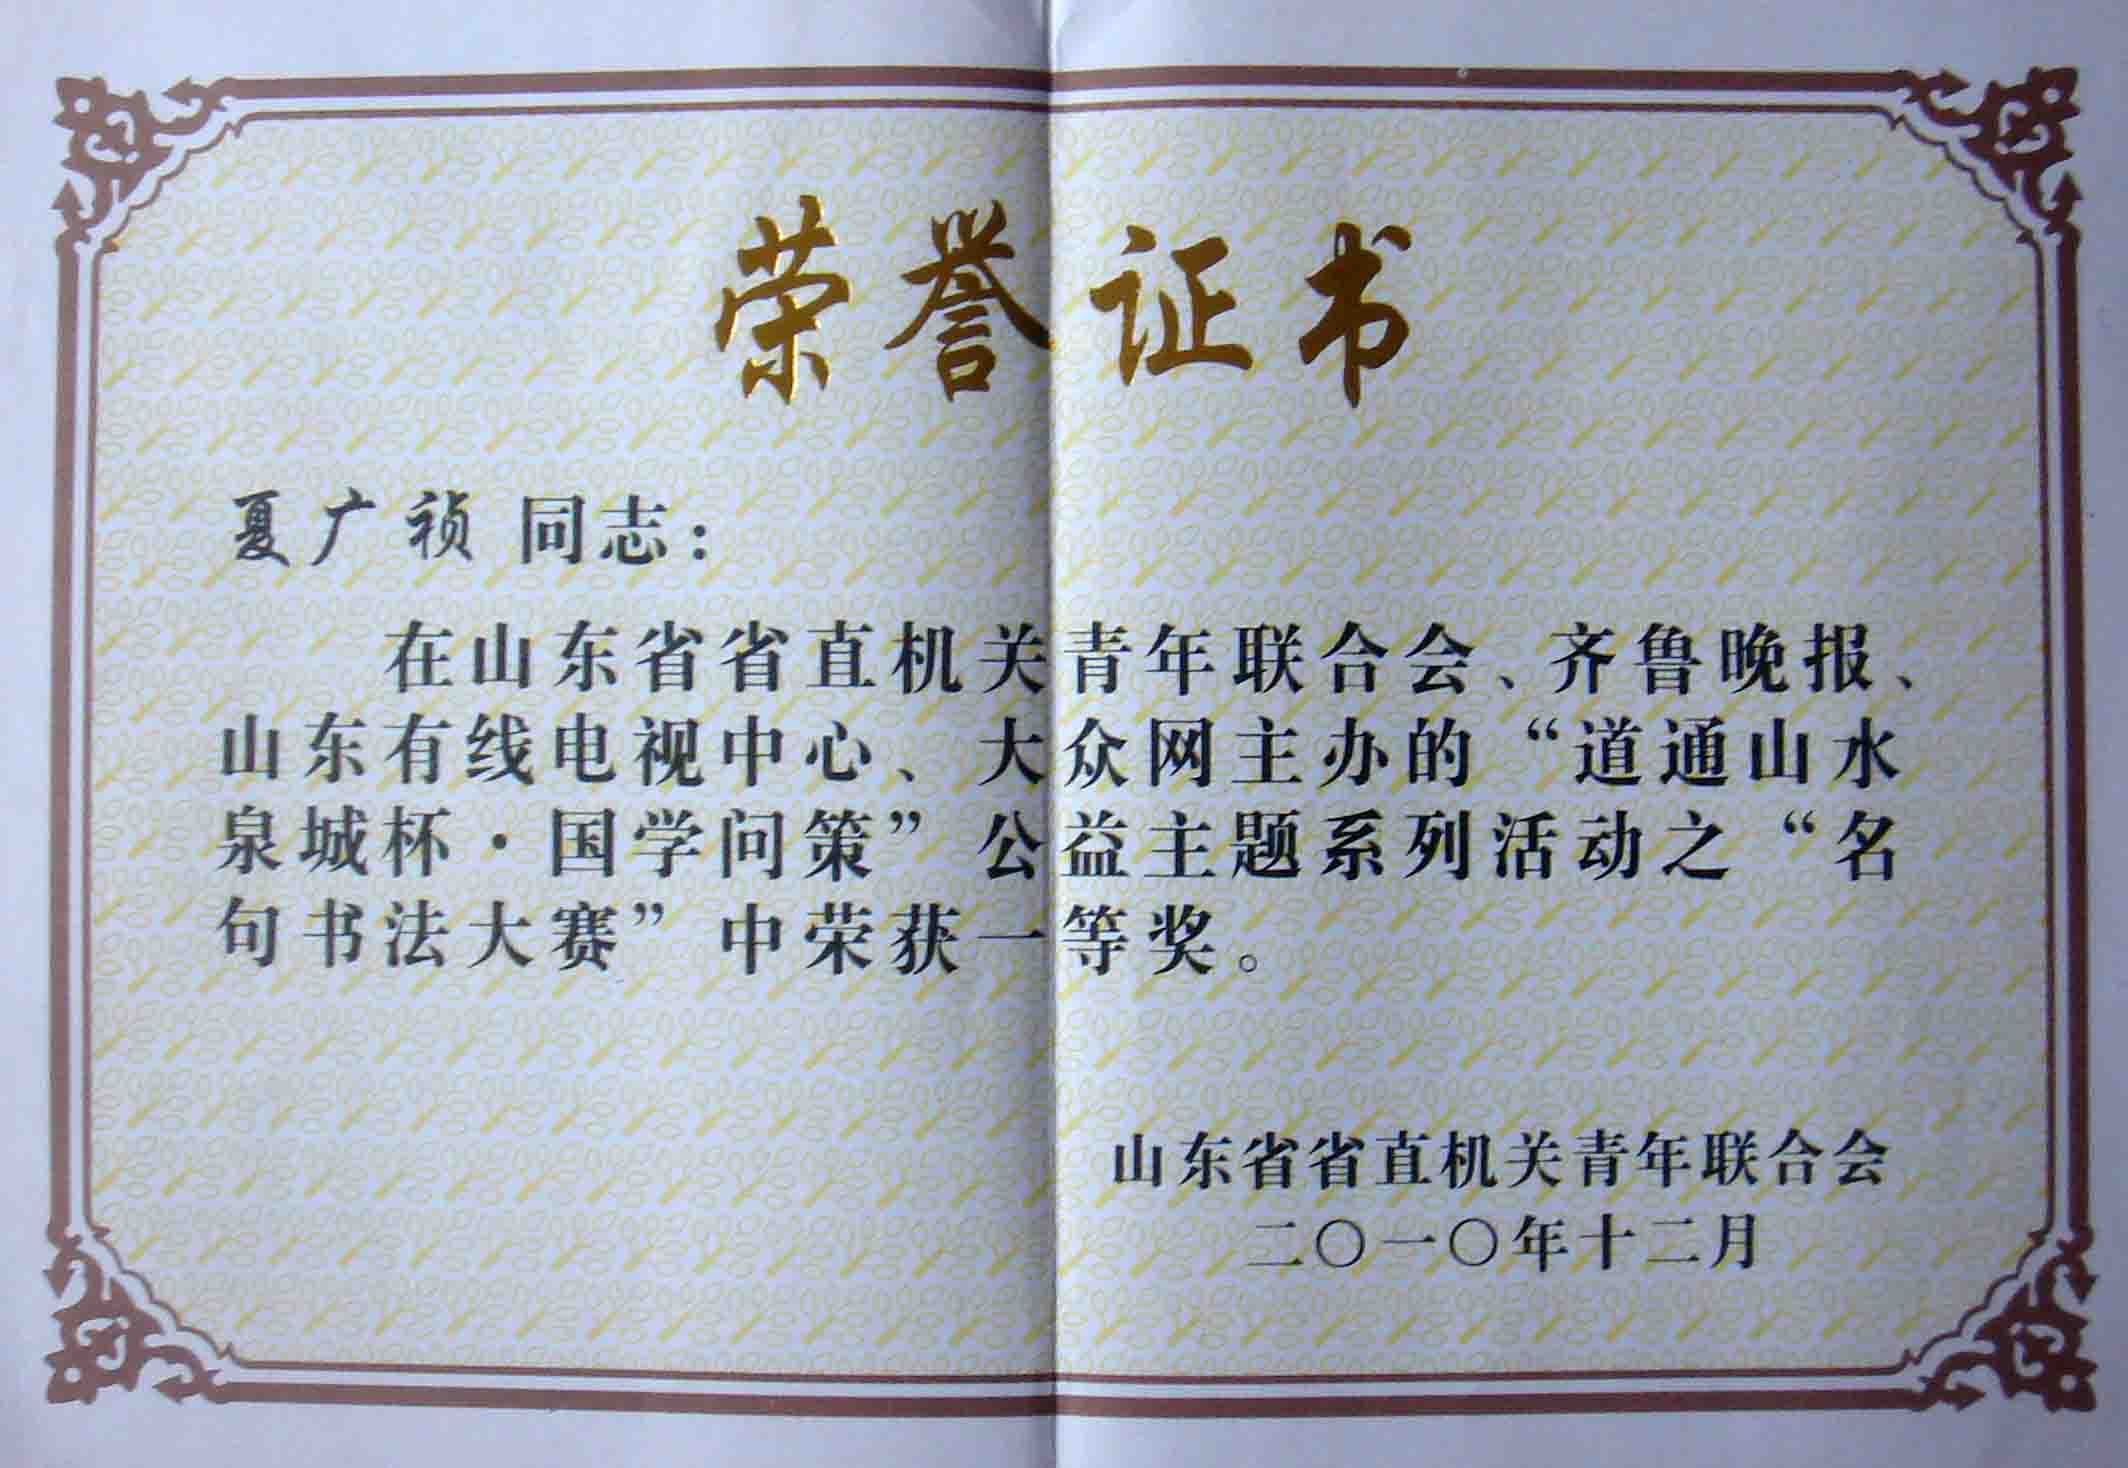 荣誉证书
夏广祯 同志：
在山东省省直机关青年联合会、齐鲁晚报、
山东有线电视中心、大众网主办的“道通山水
泉城杯·国学问策”公益主题系列活动之“名
句书法大赛”中荣获一等奖。
山东省省直机关青年联合会
二〇一〇年十二月